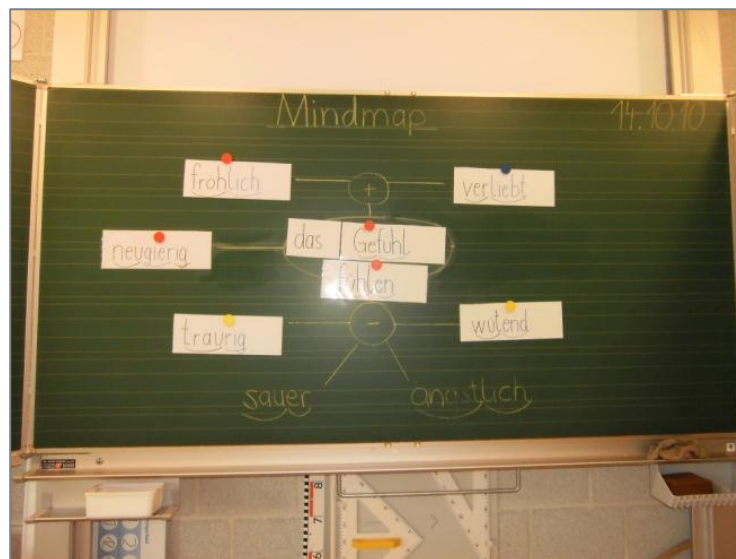 Mindmap 14.10.10
fröhlich + verliebt
neugierig das Gefühl
fühlen
traurig - wütend
sauer ängstlich
8
7
6